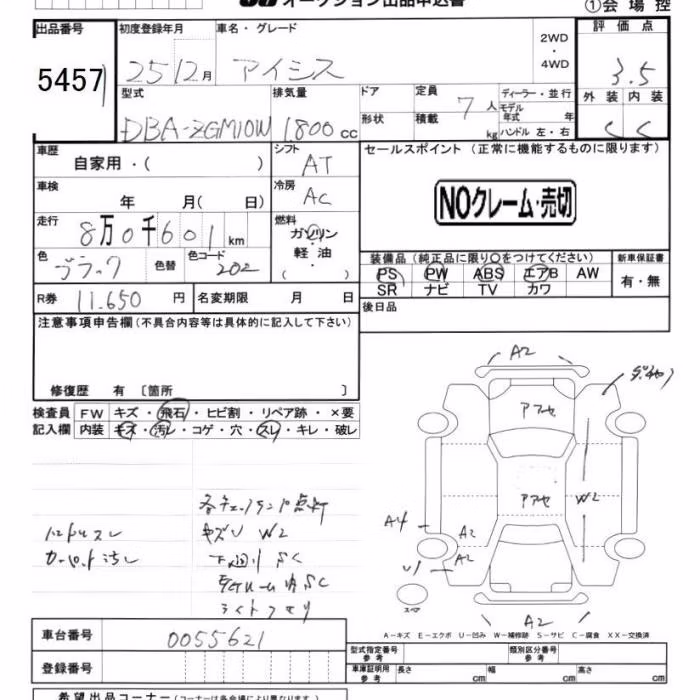 オークション出品申込書
①会場控
出品番号
5457
初度登録年月
車名・グレード
2WD
・
4WD
評価点
25 12月 アイシス
3.5
型式
排気量
ドア
定員
ディーラー・並行
外装 内装
7人
モデル
年式 年
DBA-ZGM10W 1.800 cc
形状
積載
kg
ハンドル 左・右
C C
車歴
自家用・( )
シフト
AT
セールスポイント (正常に機能するものに限ります)
車検
年 月( 日)
冷房
AC
NOクレーム・売切
走行
8万0千601km
燃料
ガソリン
軽油
( ・ )
色
ブラック
色替
色コード
202
装備品 (純正品に限り○をつけてください)
新車保証書
PS PW ABS エアB AW
SR ナビ TV カワ
有・無
R券 11.650円
名変期限 月 日
後日品
注意事項申告欄 (不具合内容等は具体的に記入して下さい)
修復歴 有 〔箇所 〕
検査員
記入欄
FW キズ・飛石・ヒビ割・リペア跡・×要
内装 キズ・汚レ・コゲ・穴・スレ・キレ・破レ
各チェックランプ点灯
ハンドルスレ
キズU W2
カーペット汚レ
下回り SC
ライトクモリ
A2
アアセ
アアセ
W2
A4
A2
A2
U1
スペア
A2
A-キズ E-エクボ U-凹み W-補修跡 S-サビ C-腐食 XX-交換済
車台番号
0055621
登録番号
型式指定番号
参考
類別区分番号
参考
車庫証明用
参考
長さ cm
幅 cm
高さ cm
希望出品コーナー (コーナーは各会場により異なります。)